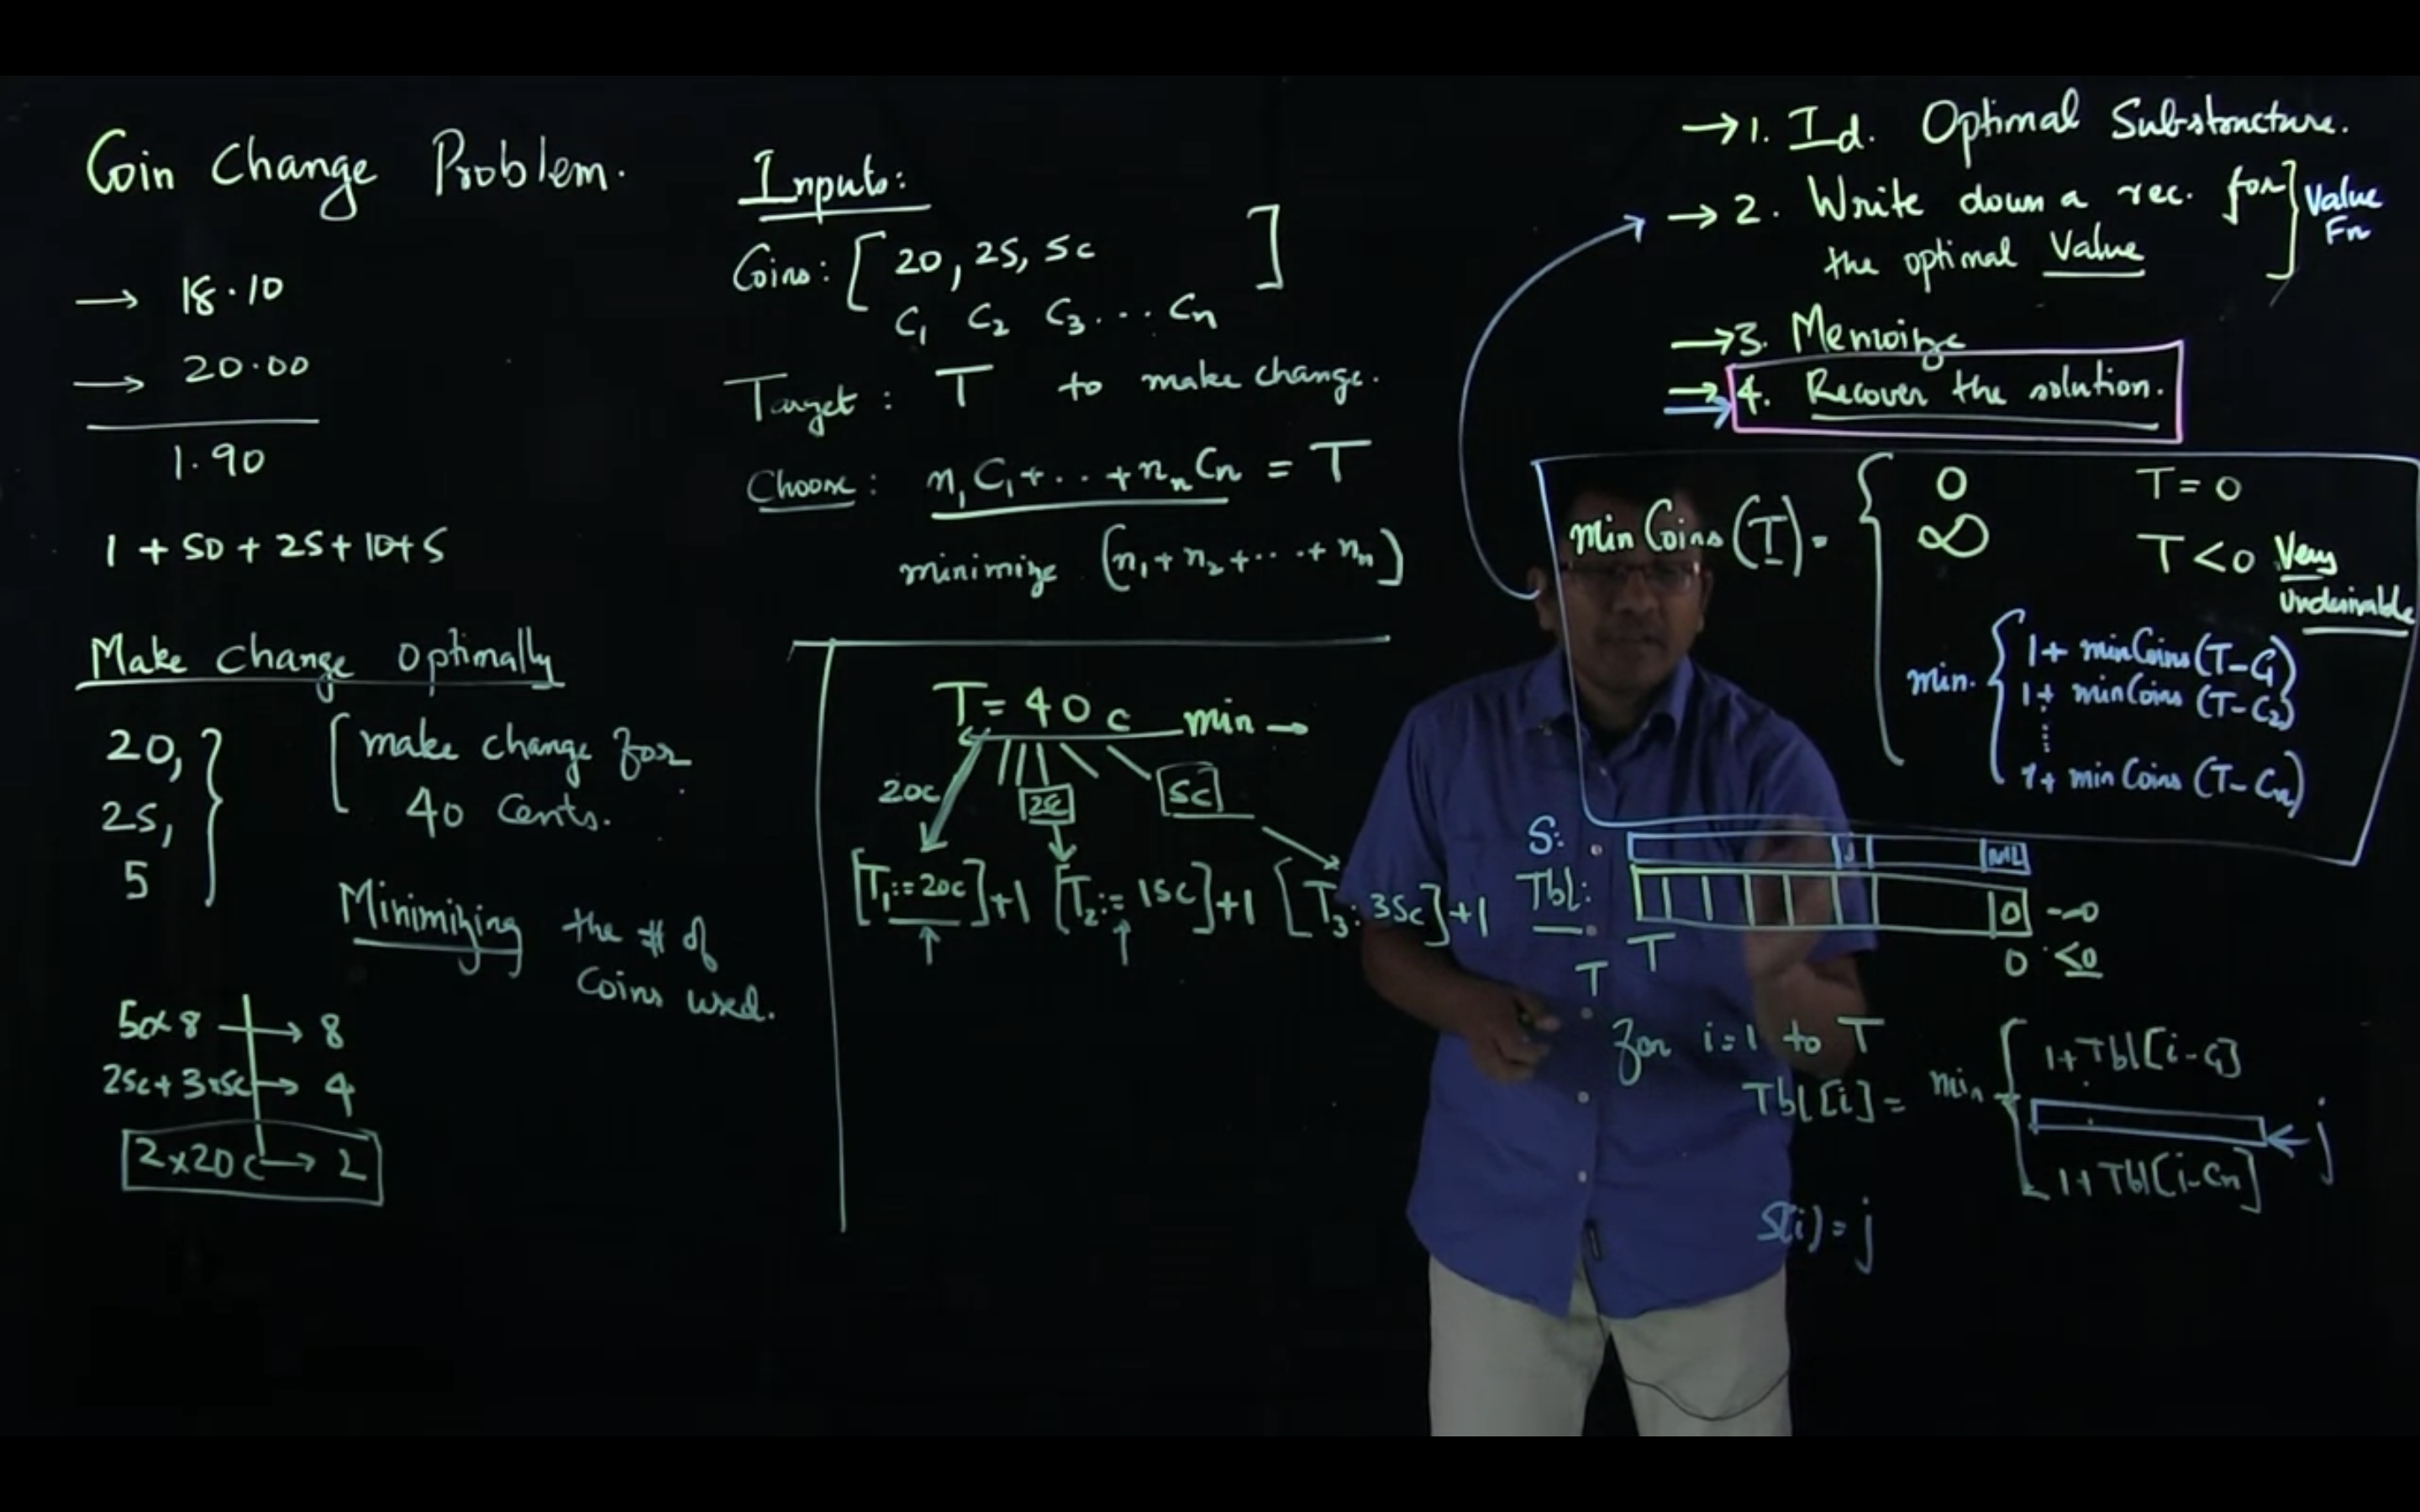 Coin Change Problem.
→ 18.10
→ 20.00
1.90
1 + 50 + 25 + 10 + 5
Make change optimally
20,
25,
5
make change for
40 Cents.
Minimizing the # of
Coins used.
5c×8 → 8
25c + 3×5c → 4
2×20c → 2
Inputs:
Coins: [20, 25, 5c ]
C₁ C₂ C₃ ... Cn
Target: T to make change.
Choose: n₁C₁ + .. + nnCn = T
minimize (n₁ + n₂ + ... + nn)
T = 40c min →
20c 25c 5c
[T₁ := 20c] + 1 [T₂ := 15c] + 1 [T₃ : 35c] + 1
→ 1. Id. Optimal Substructure.
→ 2. Write down a rec. for
the optimal Value
Value
Fn
→ 3. Memoize
→ 4. Recover the solution.
minCoins(T) =
0 T = 0
∞ T < 0 Very
Undesirable
min. { 1 + minCoins(T - C₁)
1 + minCoins(T - C₂)
⋮
1 + minCoins(T - Cn)
S: j NIL
Tbl: 0 → 0
T 0 <0
T
for i = 1 to T
Tbl[i] = min { 1 + Tbl[i - C₁]
← j
1 + Tbl[i - Cn]
S(i) = j